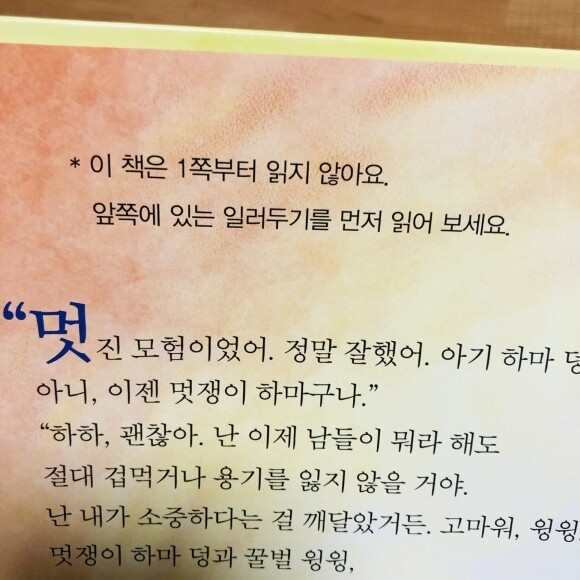 * 이 책은 1쪽부터 읽지 않아요.
앞쪽에 있는 일러두기를 먼저 읽어 보세요.
“멋진 모험이었어. 정말 잘했어. 아기 하마 덩
아니, 이젠 멋쟁이 하마구나.”
“하하, 괜찮아. 난 이제 남들이 뭐라 해도
절대 겁먹거나 용기를 잃지 않을 거야.
난 내가 소중하다는 걸 깨달았거든. 고마워, 윙윙,
멋쟁이 하마 덩과 꿀벌 윙윙,